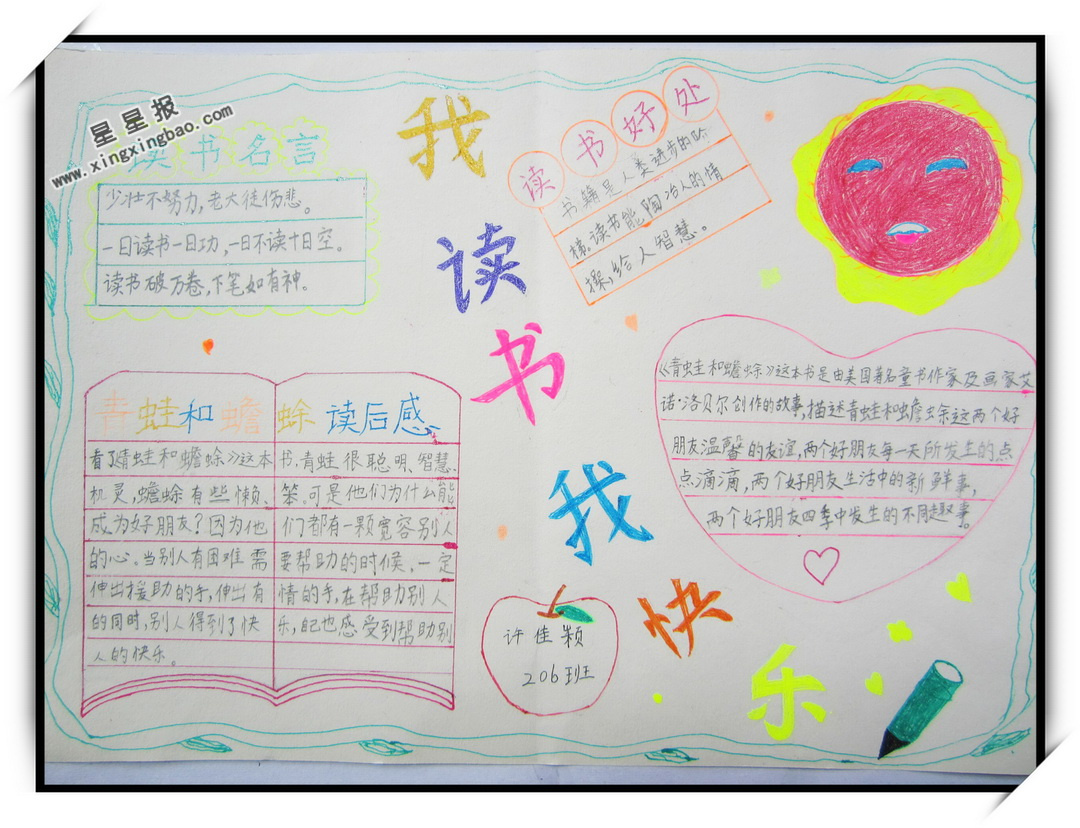 星星报
www.xingxingbao.com
读书名言
少壮不努力,老大徒伤悲。
一日读书一日功,一日不读十日空。
读书破万卷,下笔如有神。
我读书我快乐
读书好处
书籍是人类进步的阶
梯。读书能陶冶人的情
操,给人智慧。
青蛙和蟾蜍读后感
看了《青蛙和蟾蜍》这本书,青蛙很聪明、智慧、
机灵,蟾蜍有些懒、笨。可是他们为什么能
成为好朋友?因为他们都有一颗宽容别人
的心。当别人有困难需要帮助的时候,一定
伸出援助的手,伸出有情的手,在帮助别人
的同时,别人得到了快乐,自己也感受到帮助别
人的快乐。
《青蛙和蟾蜍》这本书是由美国著名童书作家及画家艾
诺·洛贝尔创作的故事,描述青蛙和蟾蜍这两个好
朋友温馨的友谊,两个好朋友每一天所发生的点
点滴滴,两个好朋友生活中的新鲜事,
两个好朋友四季中发生的不同趣事。
许佳颖
206班